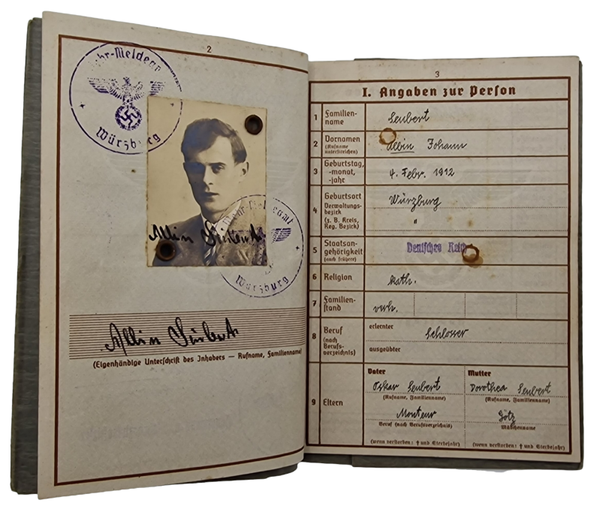 2
Würzburg
Würzburg
Albin Seubert
Albin Seubert
(Eigenhändige Unterschrift des Inhabers — Rufname, Familienname)
3
I. Angaben zur Person
1 Familien-
name
Seubert
2 Vornamen
(Rufname
unterstreichen)
Albin Johann
3 Geburtstag,
-monat,
-jahr
4. Febr. 1912
4 Geburtsort
Verwaltungs-
bezirk
(z. B. Kreis,
Reg. Bezirk)
Würzburg
"
5 Staatsan-
gehörigkeit
Deutsches Reich
6 Religion
kath.
7 Familien-
stand
verh.
8 Beruf
(nach
Berufs-
verzeichnis)
erlernter
Schlosser
ausgeübter
9 Eltern
Vater
Oskar Seubert
(Rufname, Familienname)
Monteur
Beruf (nach Berufsverzeichnis)
(wenn verstorben: † und Sterbejahr)
Mutter
Dorothea Seubert
(Rufname, Familienname)
Götz
Mädchenname
(wenn verstorben: † und Sterbejahr)